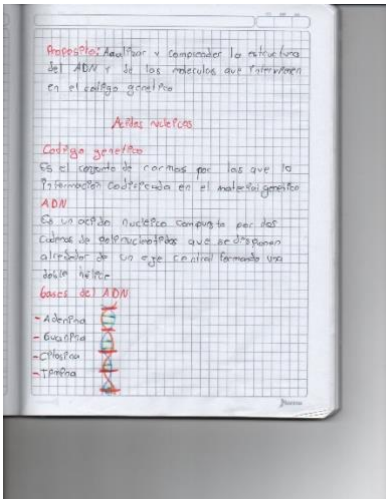 Proposito: Analizar y comprender la estructura
del ADN y de las moleculas que intervienen
en el codigo genetico
Acidos nucleicos
Codigo genetico
Es el conjunto de normas por las que la
informacion codificada en el material genetico
ADN
Es un acido nucleico compuesto por dos
cadenas de polinucleotidos que se disponen
alrededor de un eje central formando una
doble helice
bases del ADN
- Adenina
- Guanina
- Citosina
- Timina